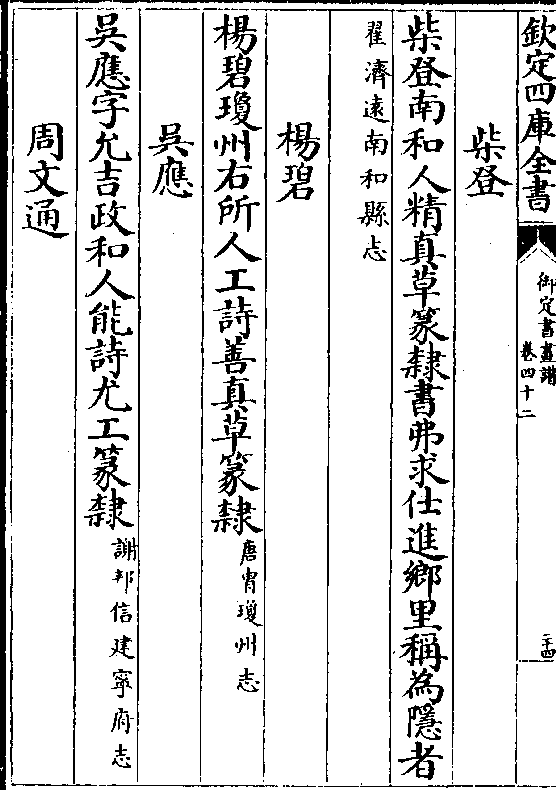 欽定四庫全書
御定書畫譜
卷四十二
二十四
柴登
柴登南和人精真草篆隸書弗求仕進鄉里稱為隱者
翟濟遠南和縣志
楊碧
楊碧瓊州右所人工詩善真草篆隸唐胄瓊州志
吳應
吳應字允吉政和人能詩尤工篆隸謝邦信建寧府志
周文通